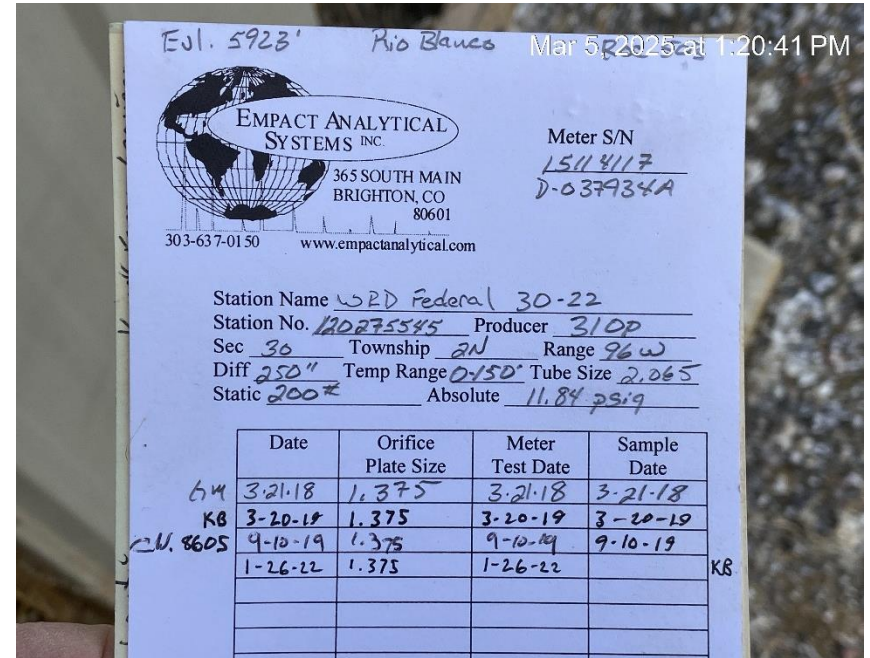 Evl. 5923' Rio Blanco
Mar 5, 2025 at 1:20:41 PM
EMPACT ANALYTICAL
SYSTEMS INC.
365 SOUTH MAIN
BRIGHTON, CO
80601
303-637-0150 www.empactanalytical.com
Meter S/N
15114117
D-037934A
Station Name WRD Federal 30-22
Station No. 120275545 Producer 310P
Sec 30 Township 2N Range 96W
Diff 250" Temp Range 0-150° Tube Size 2.065
Static 200# Absolute 11.84 psig
Date Orifice Plate Size Meter Test Date Sample Date
3.21.18 1.375 3.21.18 3-21-18
KB 3-20-19 1.375 3-20-19 3-20-19
8605 9-10-19 1.375 9-10-19 9-10-19
1-26-22 1.375 1-26-22 KB